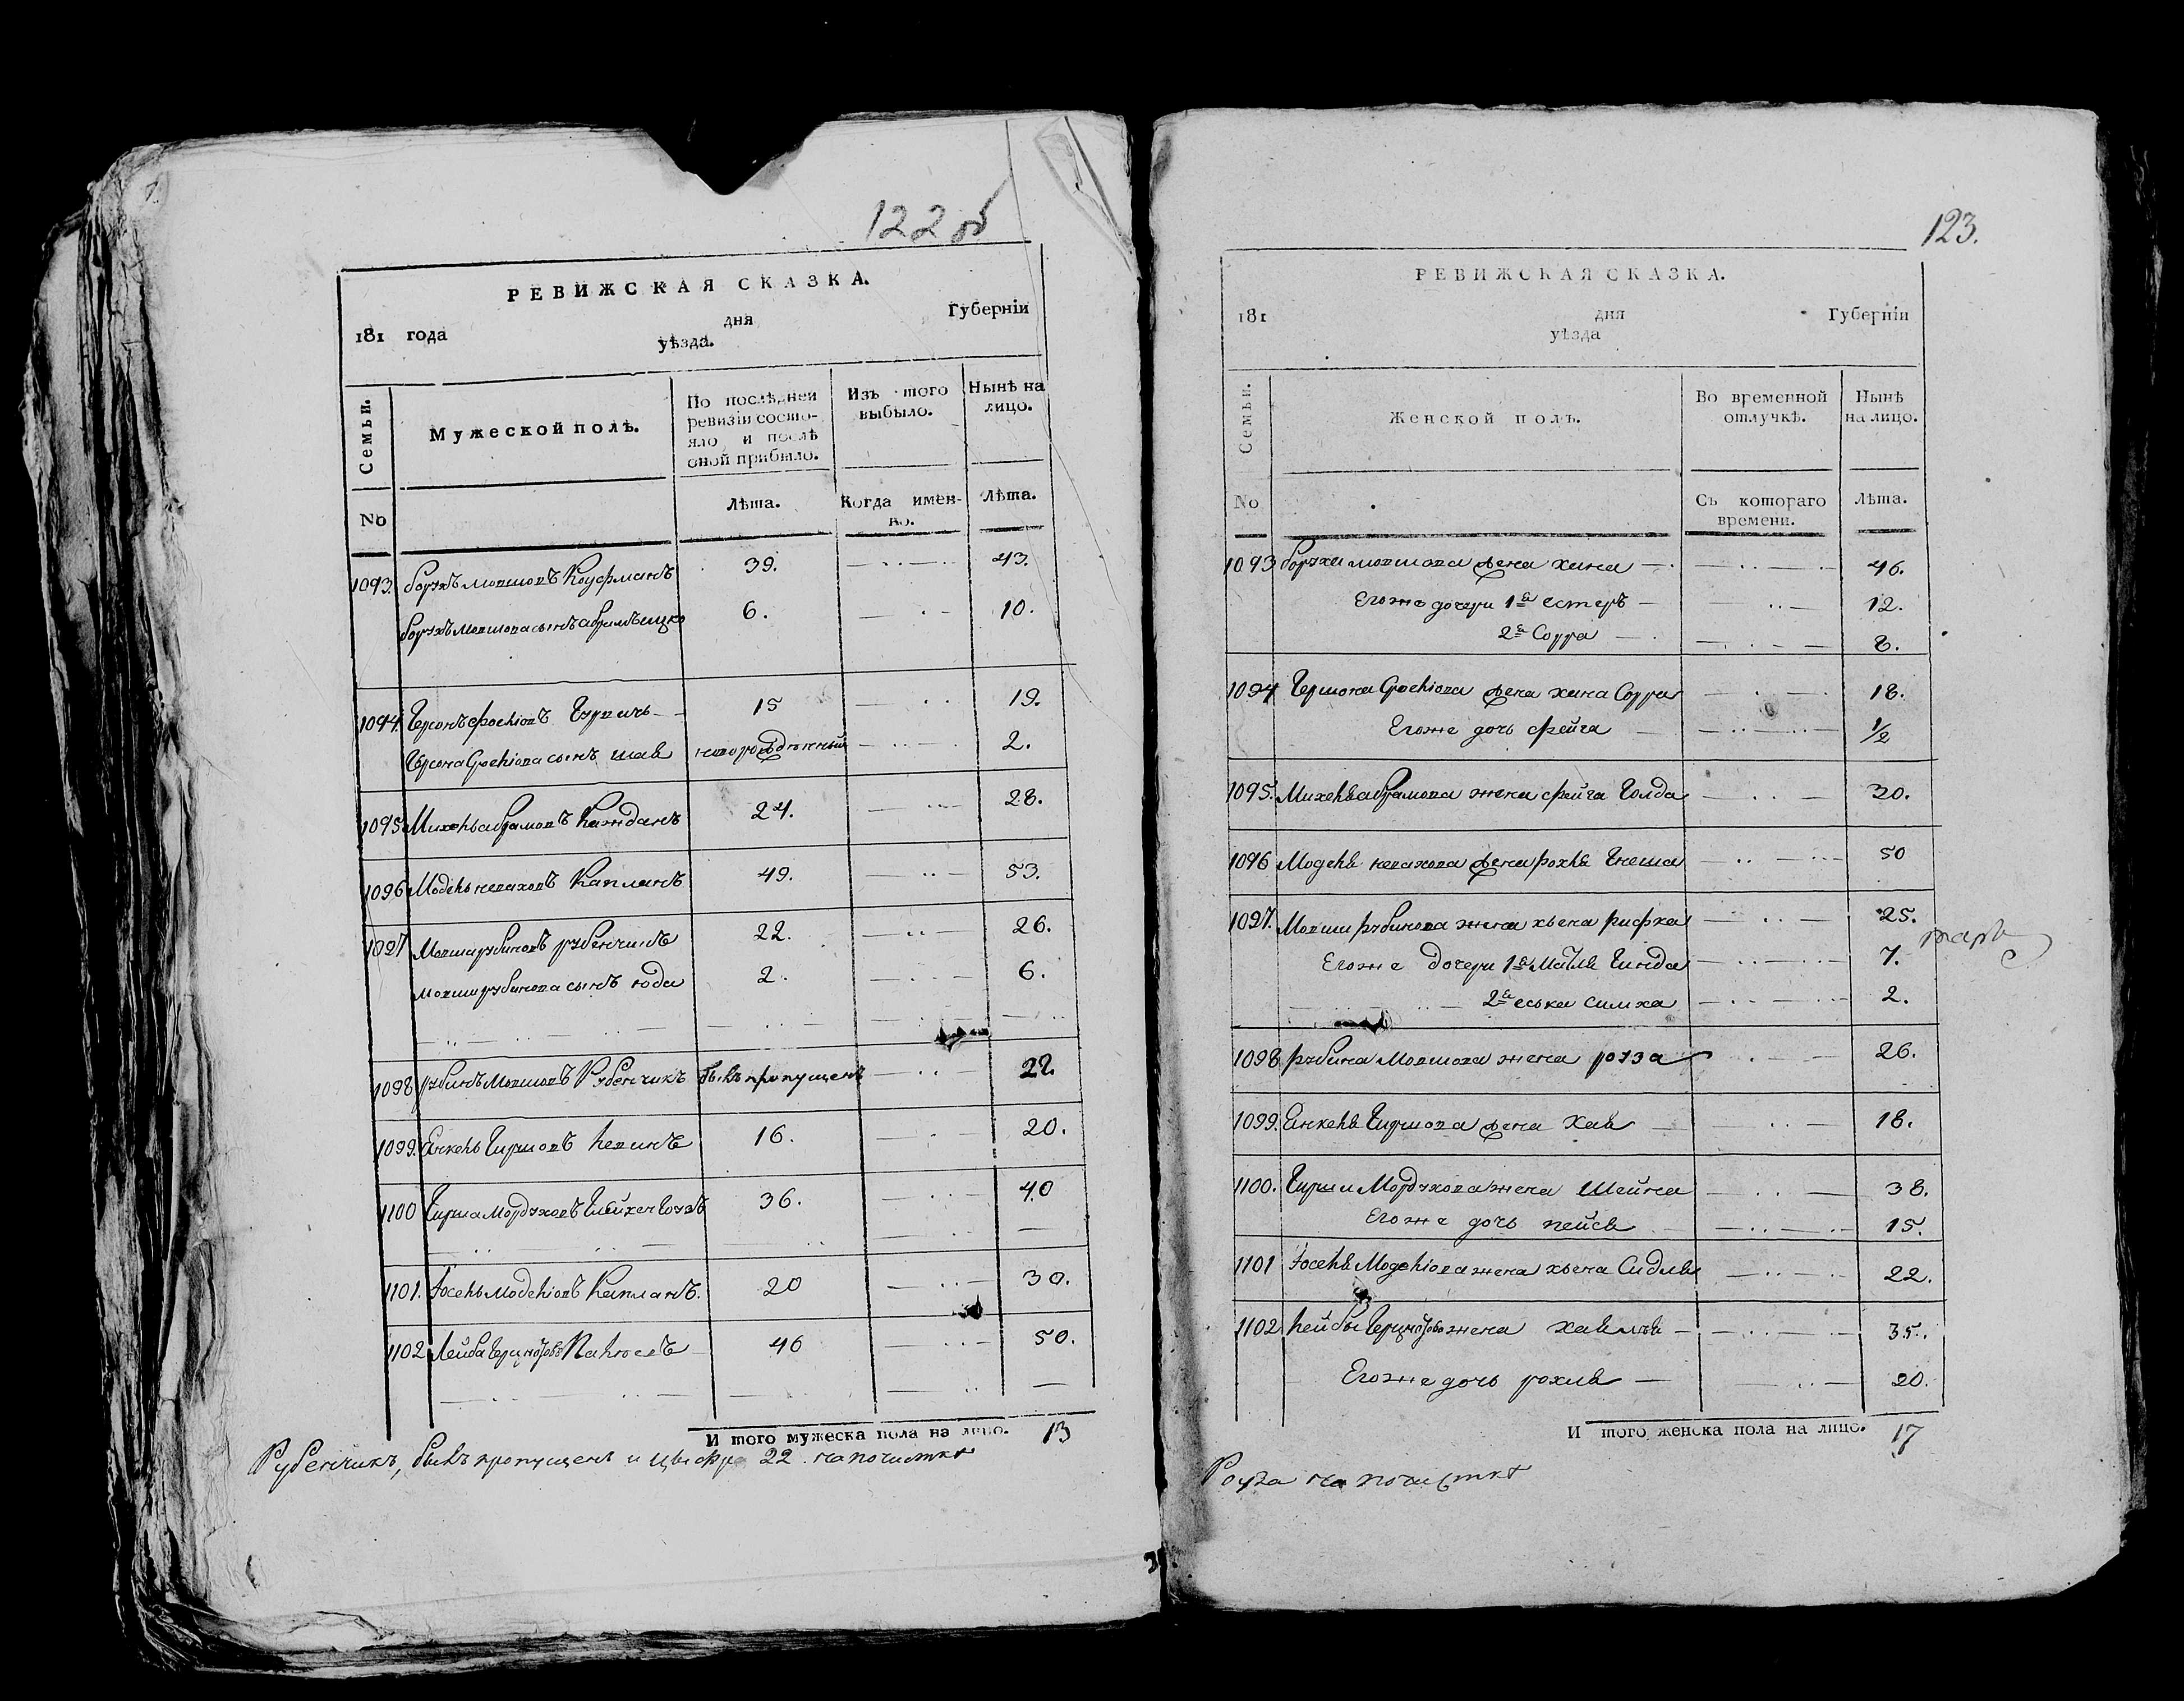 122 об
РЕВИЖСКАЯ СКАЗКА.
181 года дня Губерніи
уѣзда.
Семьи.
Мужеской полъ.
По послѣдней ревизіи состояло и послѣ оной прибыло.
Изъ того выбыло.
Нынѣ на лицо.
No
Лѣта.
Когда именно.
Лѣта.
1093. Борухъ мовшовъ Кауфманъ 39. 43.
Борухъ мовшова сынъ абрамъ ицко 6. 10.
1094. Гершонъ Гурвичь 15 19.
сынъ новорожденный 2.
1095 Михель абрамовъ Кажданъ 24. 28.
1096 Модель Капланъ 49. 53.
1097 Мовша рубиновъ рубенчикъ 22. 26.
мовши рубинова сынъ юда 2. 6.
1098 рубинъ Мовшовъ Рубенчикъ былъ пропущенъ 22.
1099. Янкель Гиршовъ Левинъ 16. 20.
1100 Гирша Мордуховъ 36. 40
1101. Іосель Моделіовъ Капланъ. 20 30.
1102 Лейба 46 50.
И того мужеска пола на лицо. 13
Рубенчикъ, былъ пропущенъ и цыфра 22. на почистке
123.
РЕВИЖСКАЯ СКАЗКА.
181 дня Губерніи
уѣзда
Семьи.
Женской полъ.
Во временной отлучкѣ.
Нынѣ на лицо.
No
Съ котораго времени.
Лѣта.
1093 Боруха мовшова жена хана 46.
Его же дочери 1я естеръ 12.
2я Сорра 8.
1094 жена хана Сорра 18.
Его же дочь фейга 1/2
1095. Михеля абрамова жена фейга Голда 30.
1096 Моделя жена рохля Гнеша 50
1097. Мовши рубинова жена хьена рифка 25.
Его же дочери 1я Гинда 7.
2я еська симха 2.
1098 рубина Мовшова жена роза 26.
1099. Янкеля Гиршова жена Хая 18.
1100. Гирши Мордухова жена Шейна 38.
Его же дочь пейся 15.
1101 Іоселя Моделіова жена хьена 22.
1102 Лейбы жена 35.
Его же дочь рохля 20.
И того женска пола на лицо. 17
Роуза на почистке